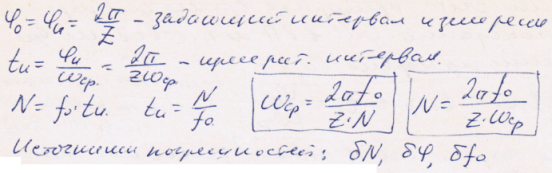 φ₀ = φи = 2π/Z - задающий интервал измерения
tи = φи/ωср. = 2π/zωср - интервал.
N = f₀·tи. tи = N/f₀ ωср = 2πf₀/Z·N N = 2πf₀/Z·ωср
Источники погрешностей: δN, δφ, δf₀